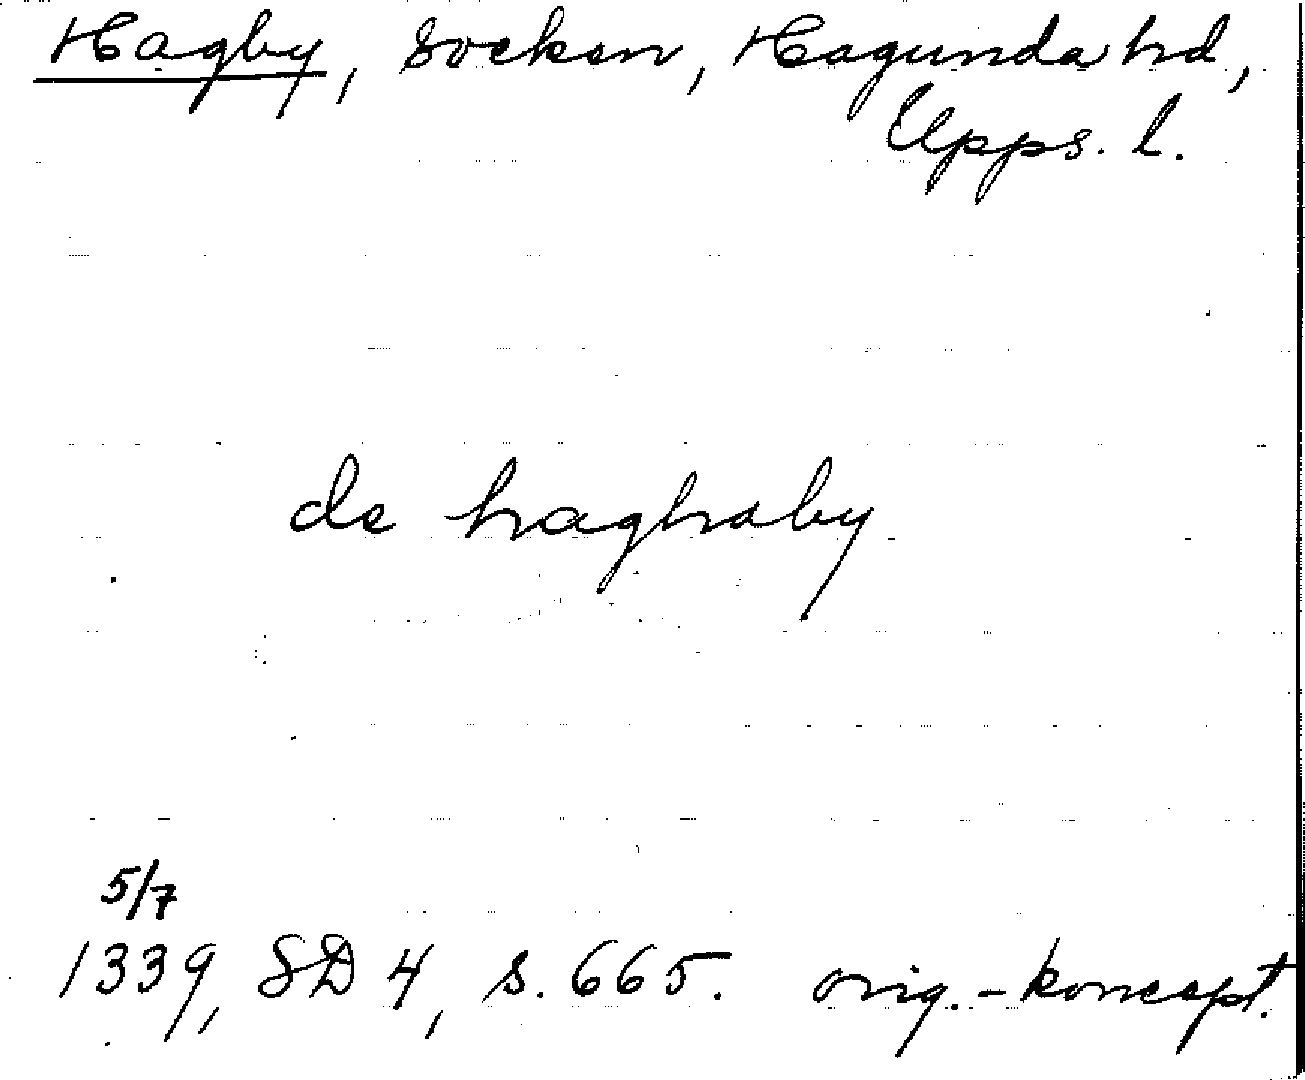 Hagby, socken, Hagunda hd,
Upps. l.
de haghaby
5/7
1339, SD 4, s. 665. orig.-koncept.